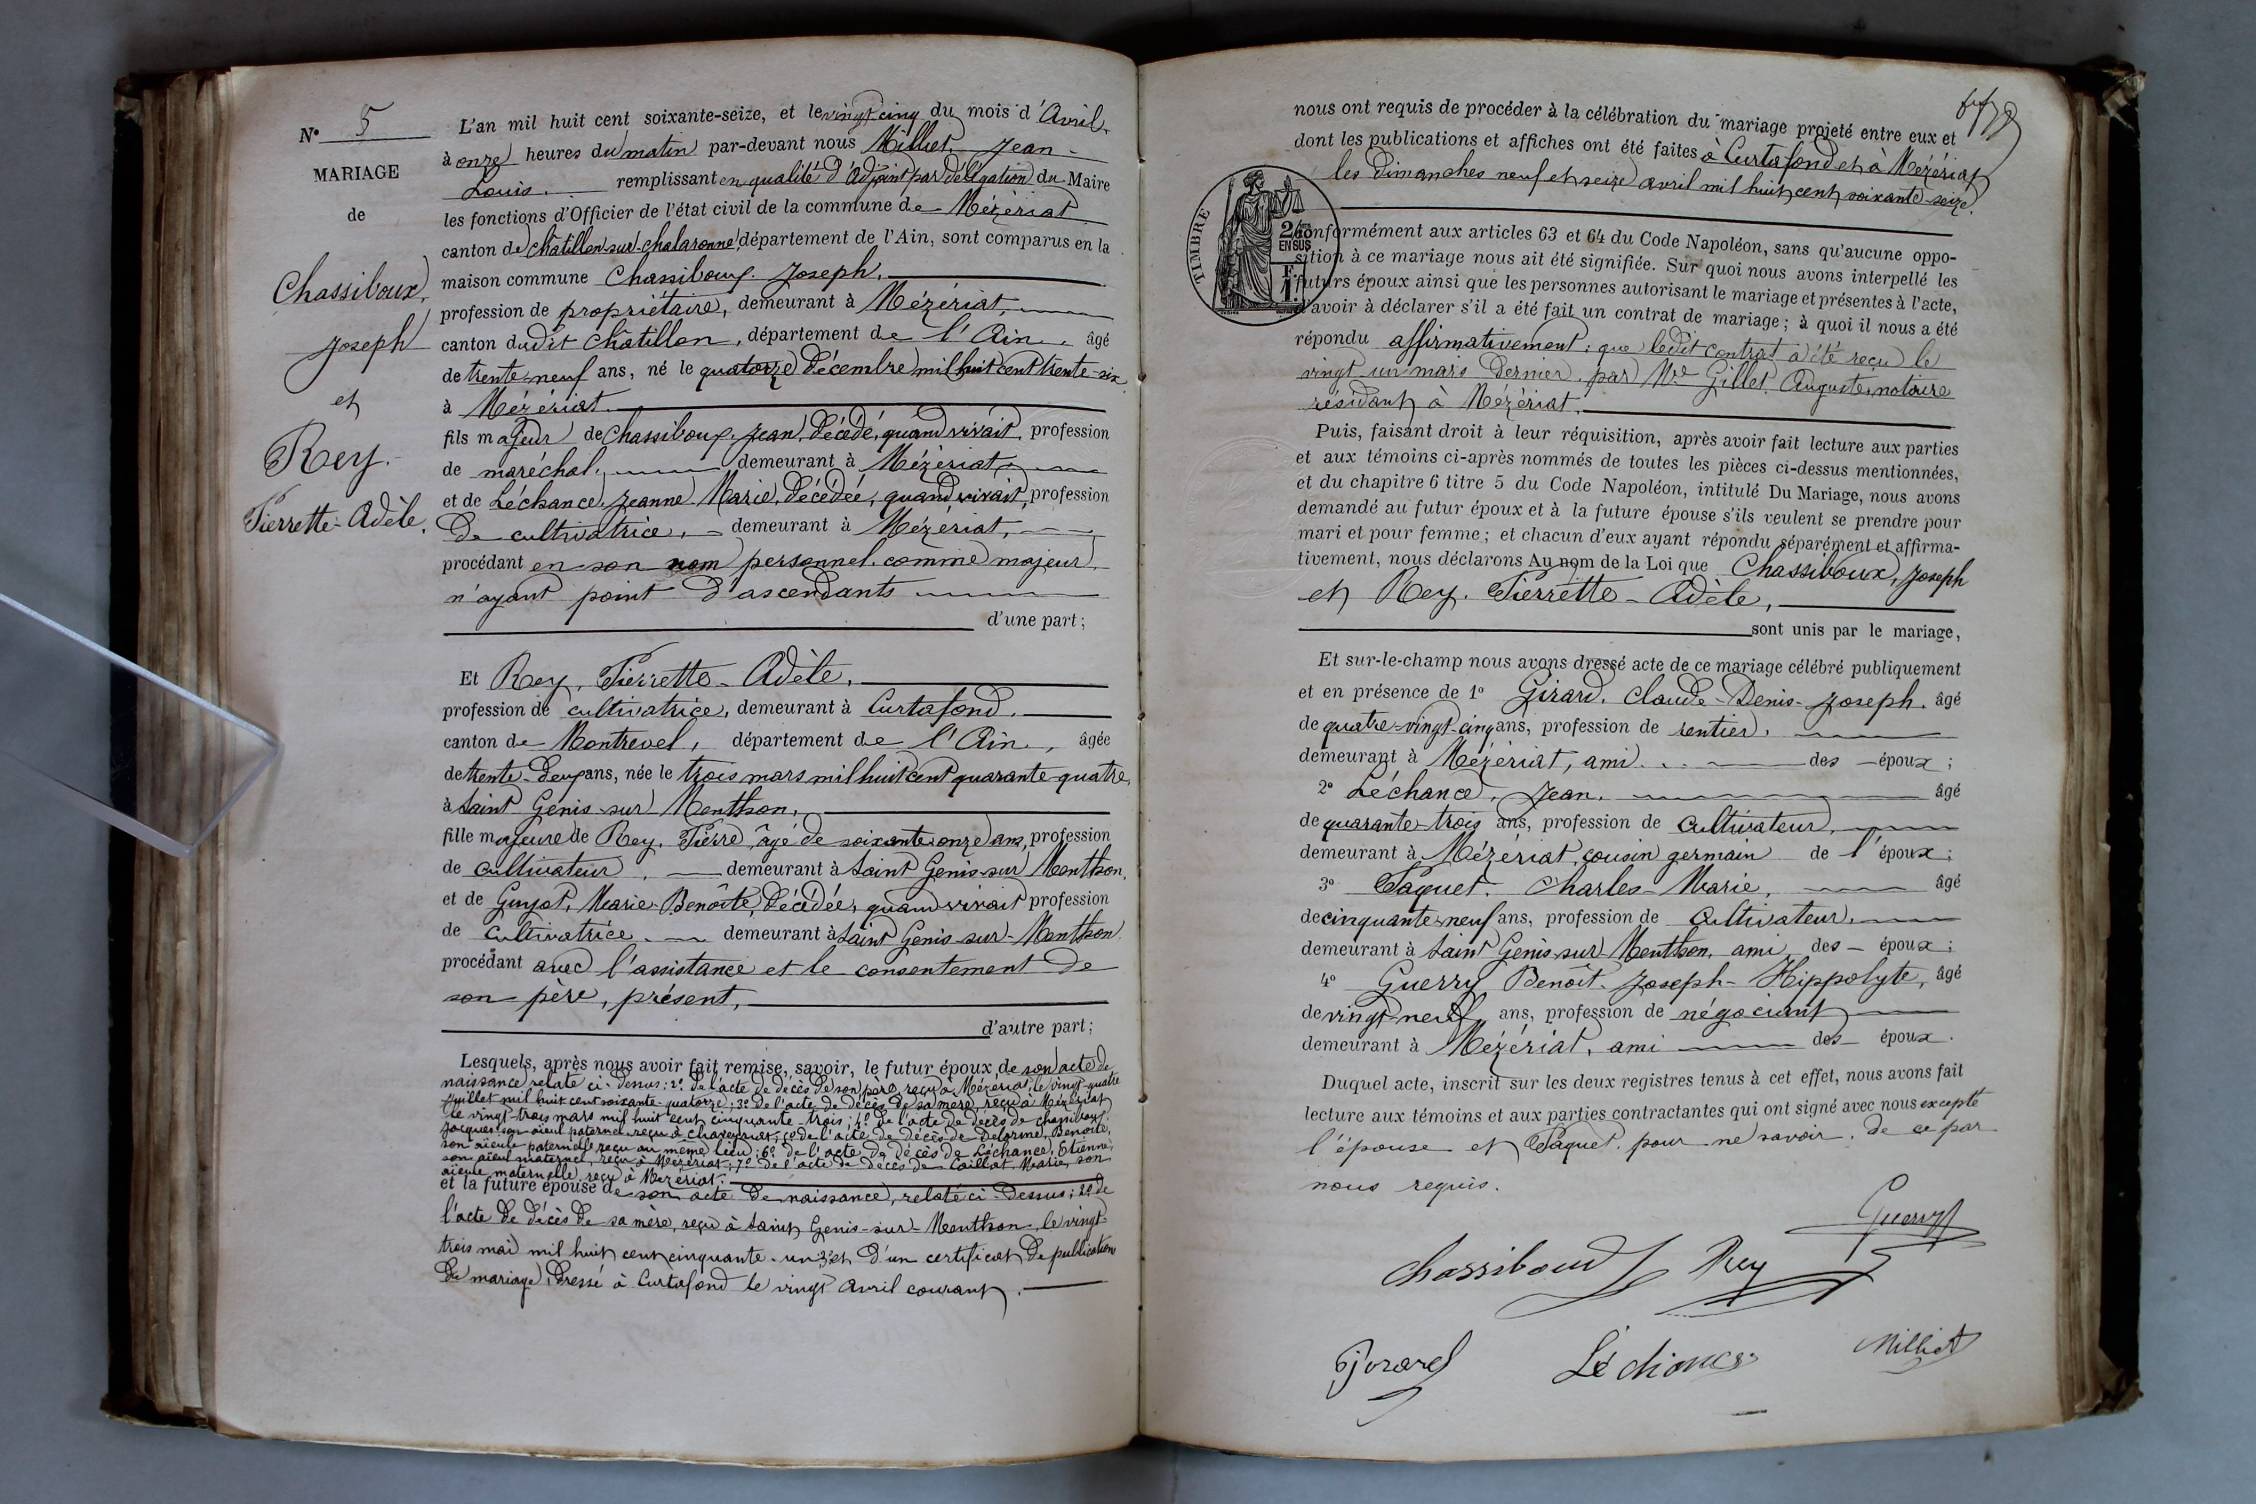 N° 5
MARIAGE
de
Chassiboux,
Joseph
et
Rey.
Pierrette-Adèle.
L'an mil huit cent soixante-seize, et le vingt cinq du mois d'Avril,
à onze heures du matin par-devant nous Milliet, Jean-
Louis. remplissant en qualité d'Adjoint par délégation du Maire
les fonctions d'Officier de l'état civil de la commune de Mézériat
canton de Châtillon-sur-Chalaronne, département de l'Ain, sont comparus en la
maison commune Chassiboux. Joseph,
profession de propriétaire, demeurant à Mézériat,
canton dudit Châtillon, département de l'Ain, âgé
de trente-neuf ans, né le quatorze Décembre mil huit cent trente-six
à Mézériat.
fils majeur de Chassiboux, Jean, décédé, quand vivait, profession
de maréchal, demeurant à Mézériat,
et de Léchance, Jeanne Marie, décédée, quand vivait, profession
de cultivatrice, demeurant à Mézériat,
procédant en son nom personnel, comme majeur,
n'ayant point d'ascendants
d'une part;
Et Rey, Pierrette-Adèle,
profession de cultivatrice, demeurant à Curtafond,
canton de Montrevel, département de l'Ain, âgée
de trente-deux ans, née le trois mars mil huit cent quarante-quatre,
à Saint Genis-sur Menthon,
fille majeure de Rey, Pierre, âgé de soixante-onze ans, profession
de cultivateur, demeurant à Saint Genis-sur Menthon,
et de Guyot, Marie-Benoîte, décédée, quand vivait profession
de cultivatrice, demeurant à Saint Genis-sur-Menthon.
procédant avec l'assistance et le consentement de
son père, présent,
d'autre part;
Lesquels, après nous avoir fait remise, savoir, le futur époux de son acte de
naissance relaté ci-dessus; 2° de l'acte de décès de son père, reçu à Mézériat, le vingt-quatre
juillet mil huit cent soixante-quatorze; 3° de l'acte de décès de sa mère, reçu à Mézériat
le vingt-trois mars mil huit cent cinquante-trois; 4° de l'acte de décès de Chassiboux,
Jacques, son aïeul paternel, reçu à Chaveyriat; 5° de l'acte de décès de Delorme, Benoîte,
son aïeule paternelle reçu au même lieu; 6° de l'acte de décès de Léchance, Etienne,
son aïeul maternel, reçu à Mézériat; 7° de l'acte de décès de Caillat, Marie, son
aïeule maternelle, reçu à Mézériat.
et la future épouse de son acte de naissance, relaté ci-dessus; 2° de
l'acte de décès de sa mère, reçu à Saint Genis-sur-Menthon, le vingt-
trois mai mil huit cent cinquante-un; 3° et d'un certificat de publication
de mariage, dressé à Curtafond le vingt avril courant.
nous ont requis de procéder à la célébration du mariage projeté entre eux et
dont les publications et affiches ont été faites à Curtafond et à Mézériat
les Dimanches neuf et seize avril mil huit cent soixante-seize.
TIMBRE
2/10 EN SUS
conformément aux articles 63 et 64 du Code Napoléon, sans qu'aucune oppo-
sition à ce mariage nous ait été signifiée. Sur quoi nous avons interpellé les
futurs époux ainsi que les personnes autorisant le mariage et présentes à l'acte,
d'avoir à déclarer s'il a été fait un contrat de mariage; à quoi il nous a été
répondu affirmativement; que ledit contrat a été reçu le
vingt un mars dernier, par Me Gillet, Auguste, notaire
résidant à Mézériat.
Puis, faisant droit à leur réquisition, après avoir fait lecture aux parties
et aux témoins ci-après nommés de toutes les pièces ci-dessus mentionnées,
et du chapitre 6 titre 5 du Code Napoléon, intitulé Du Mariage, nous avons
demandé au futur époux et à la future épouse s'ils veulent se prendre pour
mari et pour femme; et chacun d'eux ayant répondu séparément et affirma-
tivement, nous déclarons Au nom de la Loi que Chassiboux, Joseph
et Rey, Pierrette-Adèle,
sont unis par le mariage,
Et sur-le-champ nous avons dressé acte de ce mariage célébré publiquement
et en présence de 1° Girard, Claude-Denis-Joseph, âgé
de quatre-vingt-cinq ans, profession de rentier,
demeurant à Mézériat, ami des époux;
2° Léchance, Jean, âgé
de quarante-trois ans, profession de cultivateur,
demeurant à Mézériat, cousin germain de l'époux;
3° Paquet, Charles-Marie, âgé
de cinquante-neuf ans, profession de cultivateur,
demeurant à Saint Genis-sur Menthon, ami des époux;
4° Guerry Benoît-Joseph-Hippolyte, âgé
de vingt-neuf ans, profession de négociant
demeurant à Mézériat, ami des époux.
Duquel acte, inscrit sur les deux registres tenus à cet effet, nous avons fait
lecture aux témoins et aux parties contractantes qui ont signé avec nous excepté
l'épouse et Paquet, pour ne savoir, de ce par
nous requis.
Guerry
Chassiboux J Rey
Girard Léchance Milliet